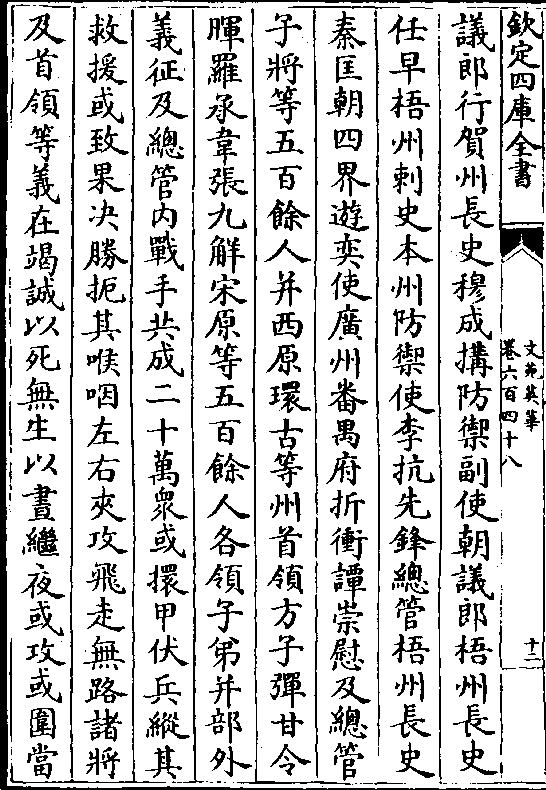 欽定四庫全書
文苑英華
卷六百四十八
十二
議郎行賀州長史穆成搆防禦副使朝議郎梧州長史
任早梧州刺史本州防禦使李抗先鋒總管梧州長史
秦匡朝四界遊奕使廣州番禺府折衝譚崇慰及總管
子將等五百餘人并西原環古等州首領方子彈甘令
暉羅承韋張九解宋原等五百餘人各領子弟并部外
義征及總管内戰手共成二十萬衆或擐甲伏兵縱其
救援或致果决勝扼其喉咽左右夾攻飛走無路諸將
及首領等義在竭誠以死無生以晝繼夜或攻或圍當